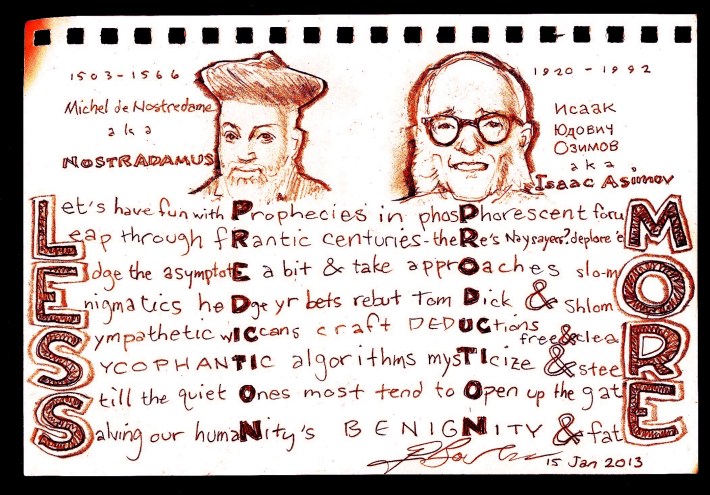 1503-1566
Michel de Nostredame
aka
NOSTRADAMUS
1920 - 1992
Исаак
Юдович
Озимов
aka
Isaac Asimov
Let's have fun with Prophecies in phosPhorescent foruM
Leap through fRantic centuries-theRe's Naysayers? deplore 'eM
Edge the asymptotE a bit & take apprOaches slo-mO
Enigmatics heDge yr bets rebut Tom Dick & ShlomO
Sympathetic wICcans craft DEDUCtions free & cleaR
SYCOPHANTIC algorithms mysTIcize & steeR
Still the quiet Ones most tend to Open up the gatE
Salving our humaNity's BENIGNITY & fatE
15 Jan 2013